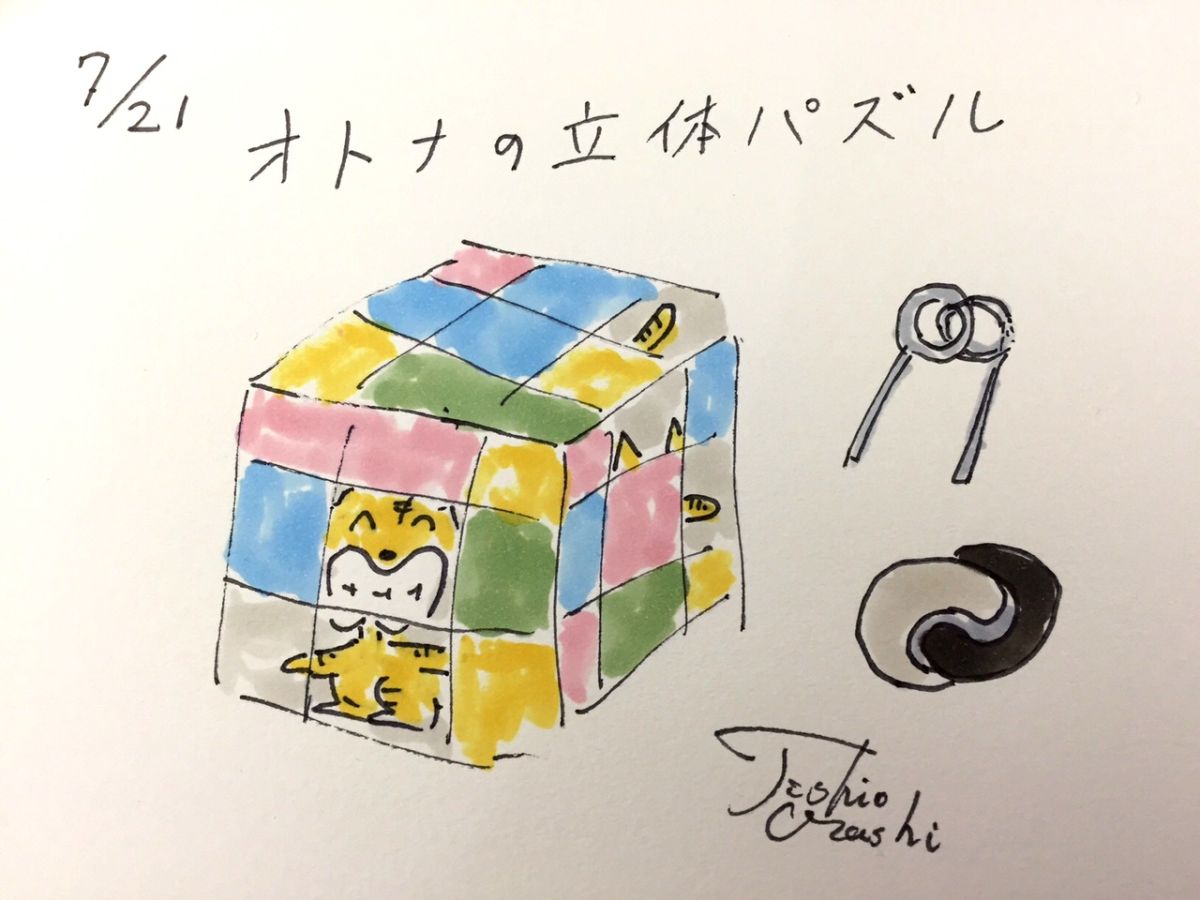 7/21
オトナの立体パズル
Toshio
Orashi